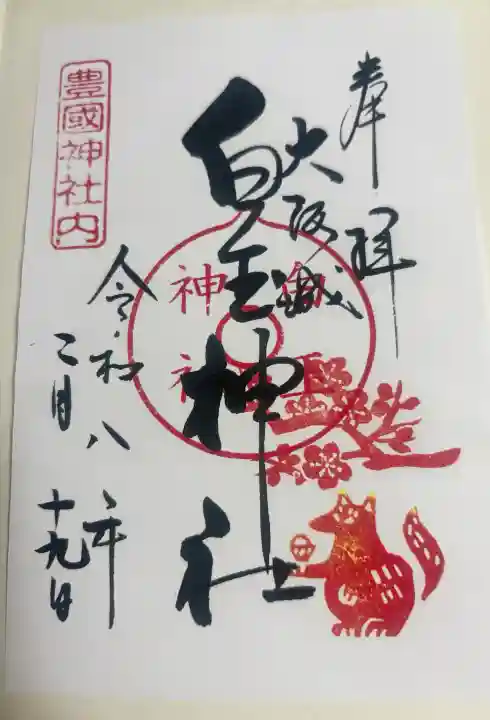 奉拝
大阪城
白玉神社
令和八年
二月十九日
豊國神社内
神社